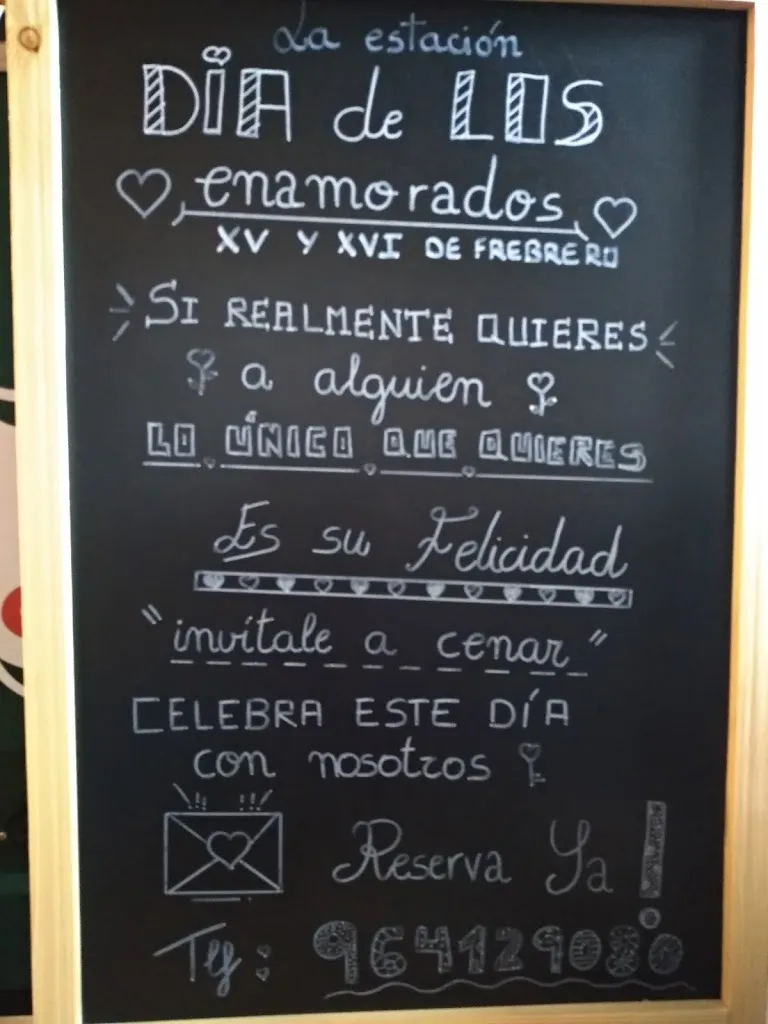 La estación
DÍA de LOS
enamorados
XV Y XVI DE FREBRERO
SI REALMENTE QUIERES
a alguien
LO ÚNICO QUE QUIERES
Es su Felicidad
"invítale a cenar"
CELEBRA ESTE DÍA
con nosotros
Reserva Ya!
Tlf: 964129080